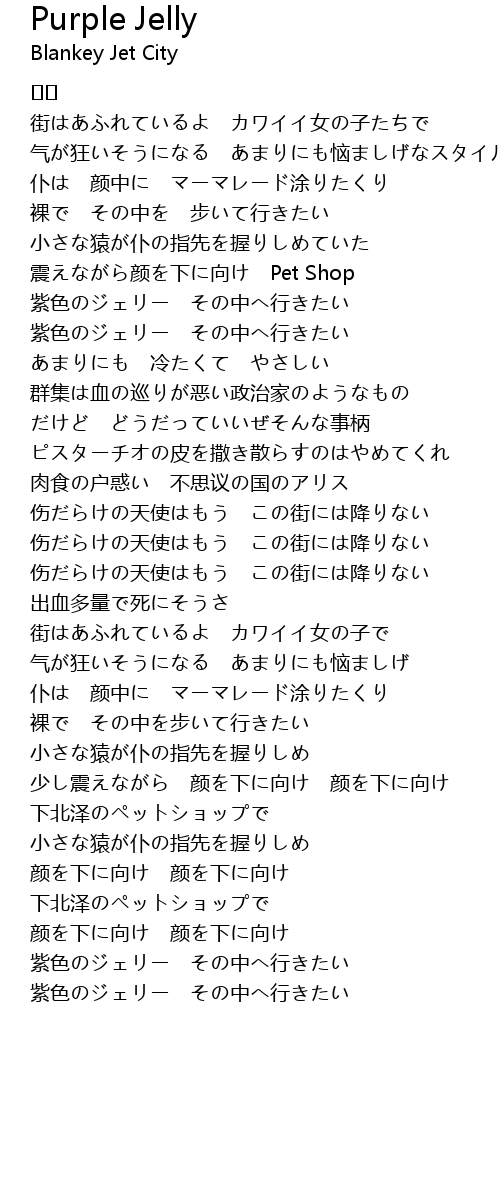 Purple Jelly
Blankey Jet City
□□
街はあふれているよ　カワイイ女の子たちで
气が狂いそうになる　あまりにも恼ましげなスタイル
仆は　颜中に　マーマレード涂りたくり
裸で　その中を　歩いて行きたい
小さな猿が仆の指先を握りしめていた
震えながら颜を下に向け　Pet Shop
紫色のジェリー　その中へ行きたい
紫色のジェリー　その中へ行きたい
あまりにも　冷たくて　やさしい
群集は血の巡りが恶い政治家のようなもの
だけど　どうだっていいぜそんな事柄
ピスターチオの皮を撒き散らすのはやめてくれ
肉食の户惑い　不思议の国のアリス
伤だらけの天使はもう　この街には降りない
伤だらけの天使はもう　この街には降りない
伤だらけの天使はもう　この街には降りない
出血多量で死にそうさ
街はあふれているよ　カワイイ女の子で
气が狂いそうになる　あまりにも恼ましげ
仆は　颜中に　マーマレード涂りたくり
裸で　その中を歩いて行きたい
小さな猿が仆の指先を握りしめ
少し震えながら　颜を下に向け　颜を下に向け
下北泽のペットショップで
小さな猿が仆の指先を握りしめ
颜を下に向け　颜を下に向け
下北泽のペットショップで
颜を下に向け　颜を下に向け
紫色のジェリー　その中へ行きたい
紫色のジェリー　その中へ行きたい